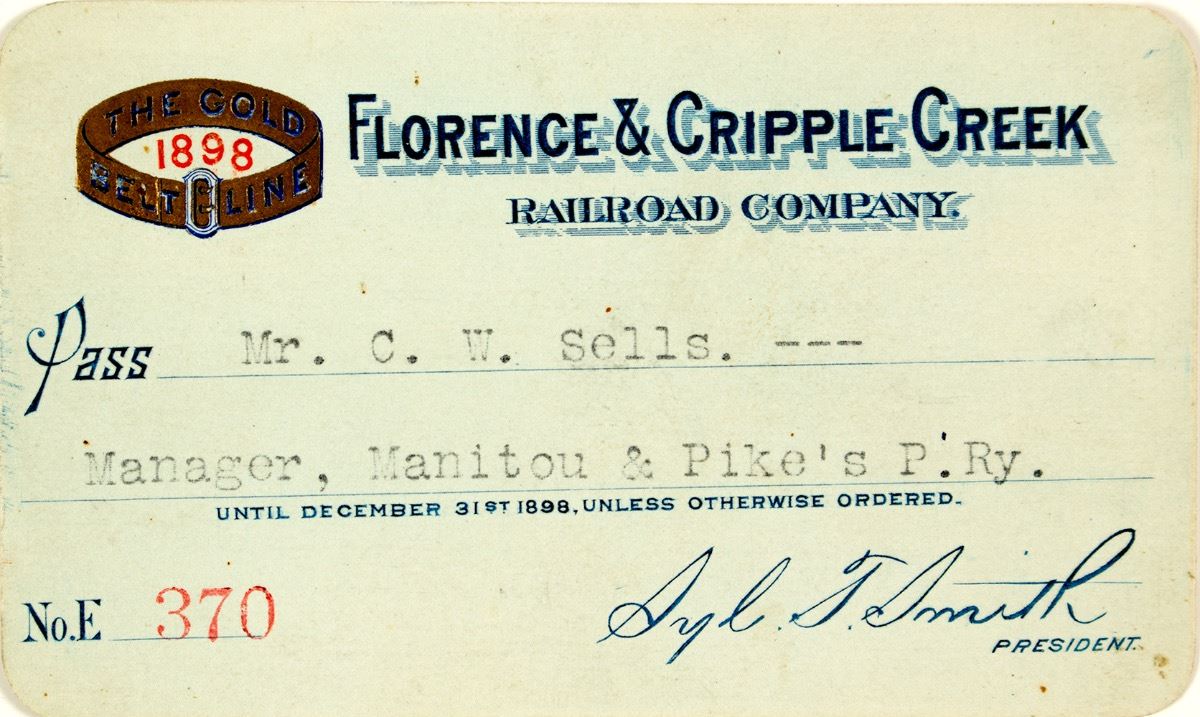 THE GOLD
1898
BELT LINE
FLORENCE & CRIPPLE CREEK
RAILROAD COMPANY.
Pass Mr. C. W. Sells. ---
Manager, Manitou & Pike's P. Ry.
UNTIL DECEMBER 31ST 1898, UNLESS OTHERWISE ORDERED.
No. E 370
Syl. T. Smith
PRESIDENT.